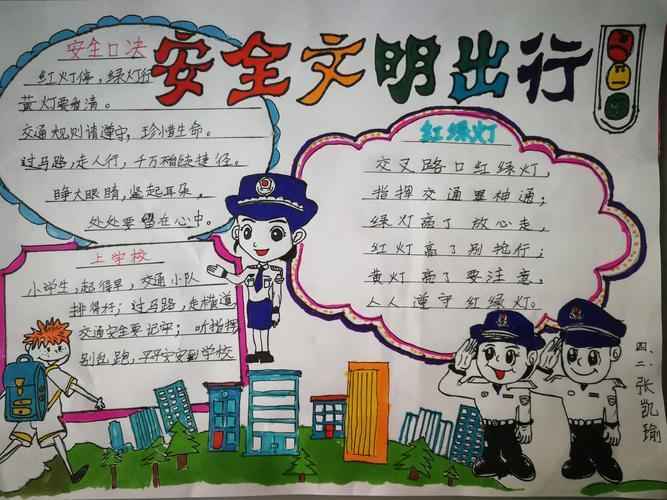 安全文明出行
安全口决
红灯停，绿灯行
黄灯要看清。
交通规则请遵守，珍惜生命。
过马路，走人行，千万别走捷径。
睁大眼睛，竖起耳朵，
处处要留在心中。
上学校
小学生，起得早，交通小队
排得好；过马路，走横道，
交通安全要记牢；听指挥
别乱跑，平平安安到学校
红绿灯
交叉路口红绿灯，
指挥交通显神通；
绿灯亮了放心走，
红灯亮了别抢行；
黄灯亮了要注意，
人人遵守红绿灯。
四、二、张凯瑜